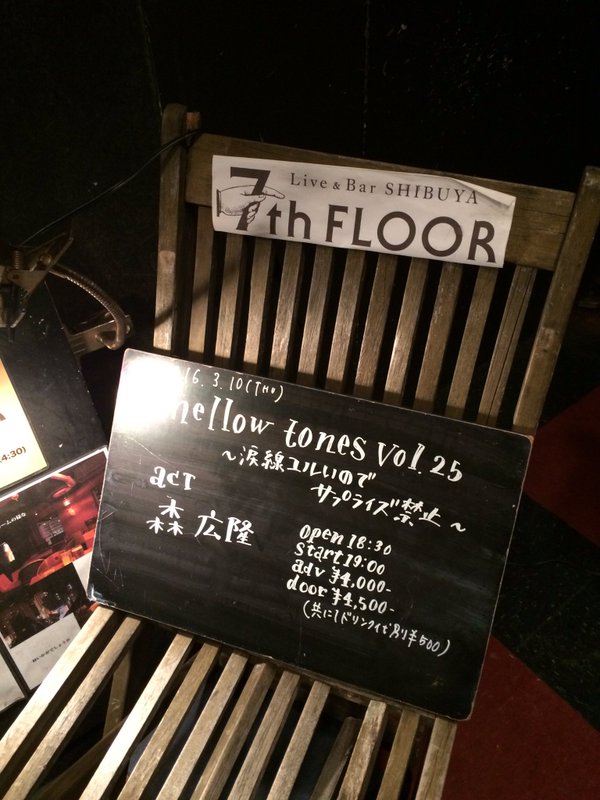 Live & Bar SHIBUYA
7th FLOOR
16. 3. 10 (THU)
mellow tones Vol. 25
～涙線ユルいので
サプライズ禁止～
act
森 広隆
open 18:30
start 19:00
adv ¥4,000-
door ¥4,500-
(共に1ドリンク代別り¥500)
4:30)